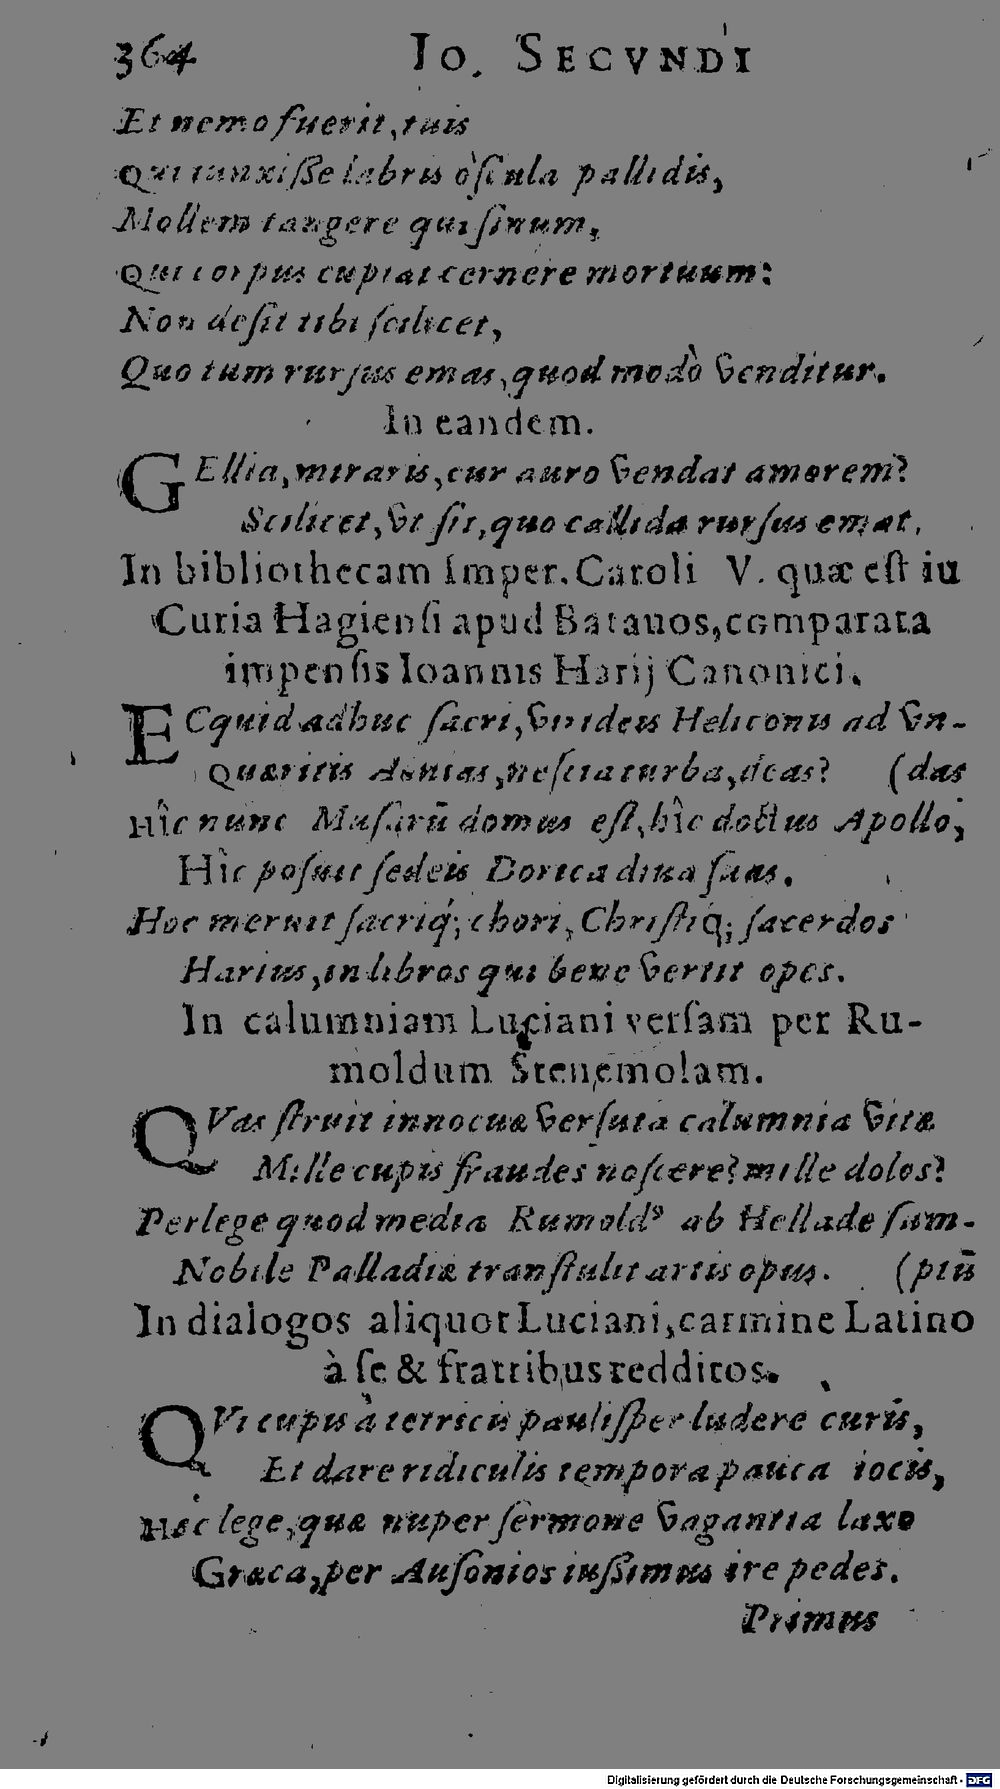 364 IO. SECVNDI
Et nemo fuerit, tuis
Qui iunxiſſe labris òſcula pallidis,
Mollem tangere qui ſinum,
Qui corpus cupiat cernere mortuum:
Non deſit tibi ſcilicet,
Quo tum rurſus emas, quod modò venditur.
In eandem.
GEllia, miraris, cur auro vendat amorem?
Scilicet, vt ſit, quo callida rurſus emat.
In bibliothecam Imper. Caroli V. quæ eſt iu
Curia Hagienſi apud Batauos, comparata
impenſis Ioannis Harij Canonici.
ECquid adhuc ſacri, virideis Heliconis ad vn-
Quæritis Aonias, neſcia turba, deas? (das
Hîc nunc Muſarū domus eſt, hîc doctus Apollo,
Hîc poſuit ſedeis Dorica diua ſuas.
Hoc meruit ſacriq́; chori, Chriſtiq́; ſacerdos
Harius, in libros qui bene vertit opes.
In calumniam Luciani verſam per Ru-
moldum Stenemolam.
QVas ſtruit innocuæ verſuta calumnia vitæ
Mille cupis fraudes noſcere? mille dolos?
Perlege quod media Rumoldꝰ ab Hellade ſum-
Nobile Palladiæ tranſtulit artis opus. (ptū
In dialogos aliquot Luciani, carmine Latino
à ſe & fratribus redditos.
QVi cupis à tetricis pauliſper ludere curis,
Et dare ridiculis tempora pauca iocis,
Hæc lege, quæ nuper ſermone vagantia laxo
Græca, per Auſonios iuſſimus ire pedes.
Primus
Digitalisierung gefördert durch die Deutsche Forschungsgemeinschaft - DFG